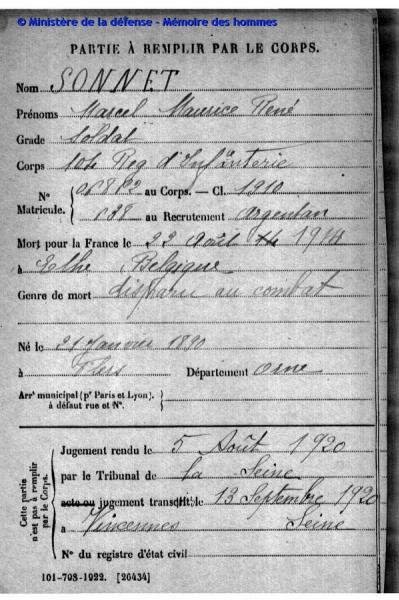 © Ministère de la défense - Mémoire des hommes
PARTIE À REMPLIR PAR LE CORPS.
Nom SONNET
Prénoms Marcel Maurice René
Grade Soldat
Corps 104 Reg d'Infanterie
No au Corps. — Cl. 1910
Matricule. 638 au Recrutement Argentan
Mort pour la France le 22 Août 1914
à Ethe Belgique
Genre de mort disparu au combat
Né le 21 Janvier 1890
à Flers Département Orne
Arrt municipal (pr Paris et Lyon),
à défaut rue et No.
Cette partie
n'est pas à remplir
par le Corps.
Jugement rendu le 5 Août 1920
par le Tribunal de la Seine
acte ou jugement transcrit le 13 Septembre 1920
à Vincennes Seine
No du registre d'état civil
101-708-1922. [26434]